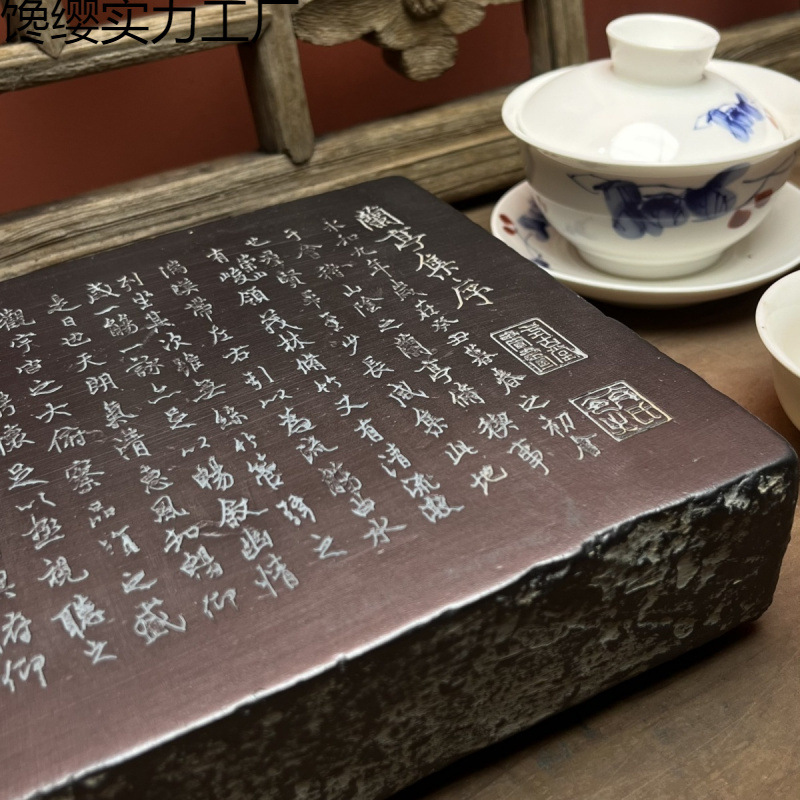 馋缨实力工厂
蘭亭集序
永和九年歲在癸丑暮春之初會
于會稽山陰之蘭亭脩稧事
也群賢畢至少長咸集此地
有崇山峻領茂林脩竹又有清流激
湍暎帶左右引以為流觴曲水
列坐其次雖無絲竹管弦之
盛一觴一詠亦足以暢敘幽情
是日也天朗氣清惠風和暢仰
觀宇宙之大俯察品類之盛
騁懷足以極視聽之
與俯仰